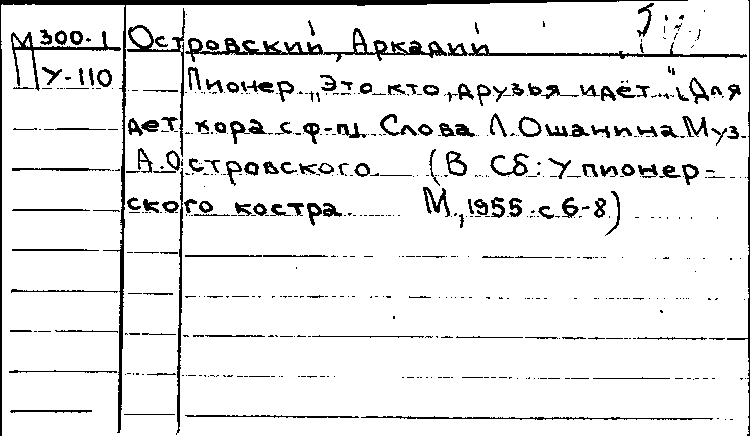 М 300-1 Островский, Аркадий
П У-110 Пионер „Это кто, друзья идёт..." Для
дет хора с ф-п. Слова Л. Ошанина Муз.
А. Островского (В Сб: У пионер-
ского костра М., 1955. с 6-8)